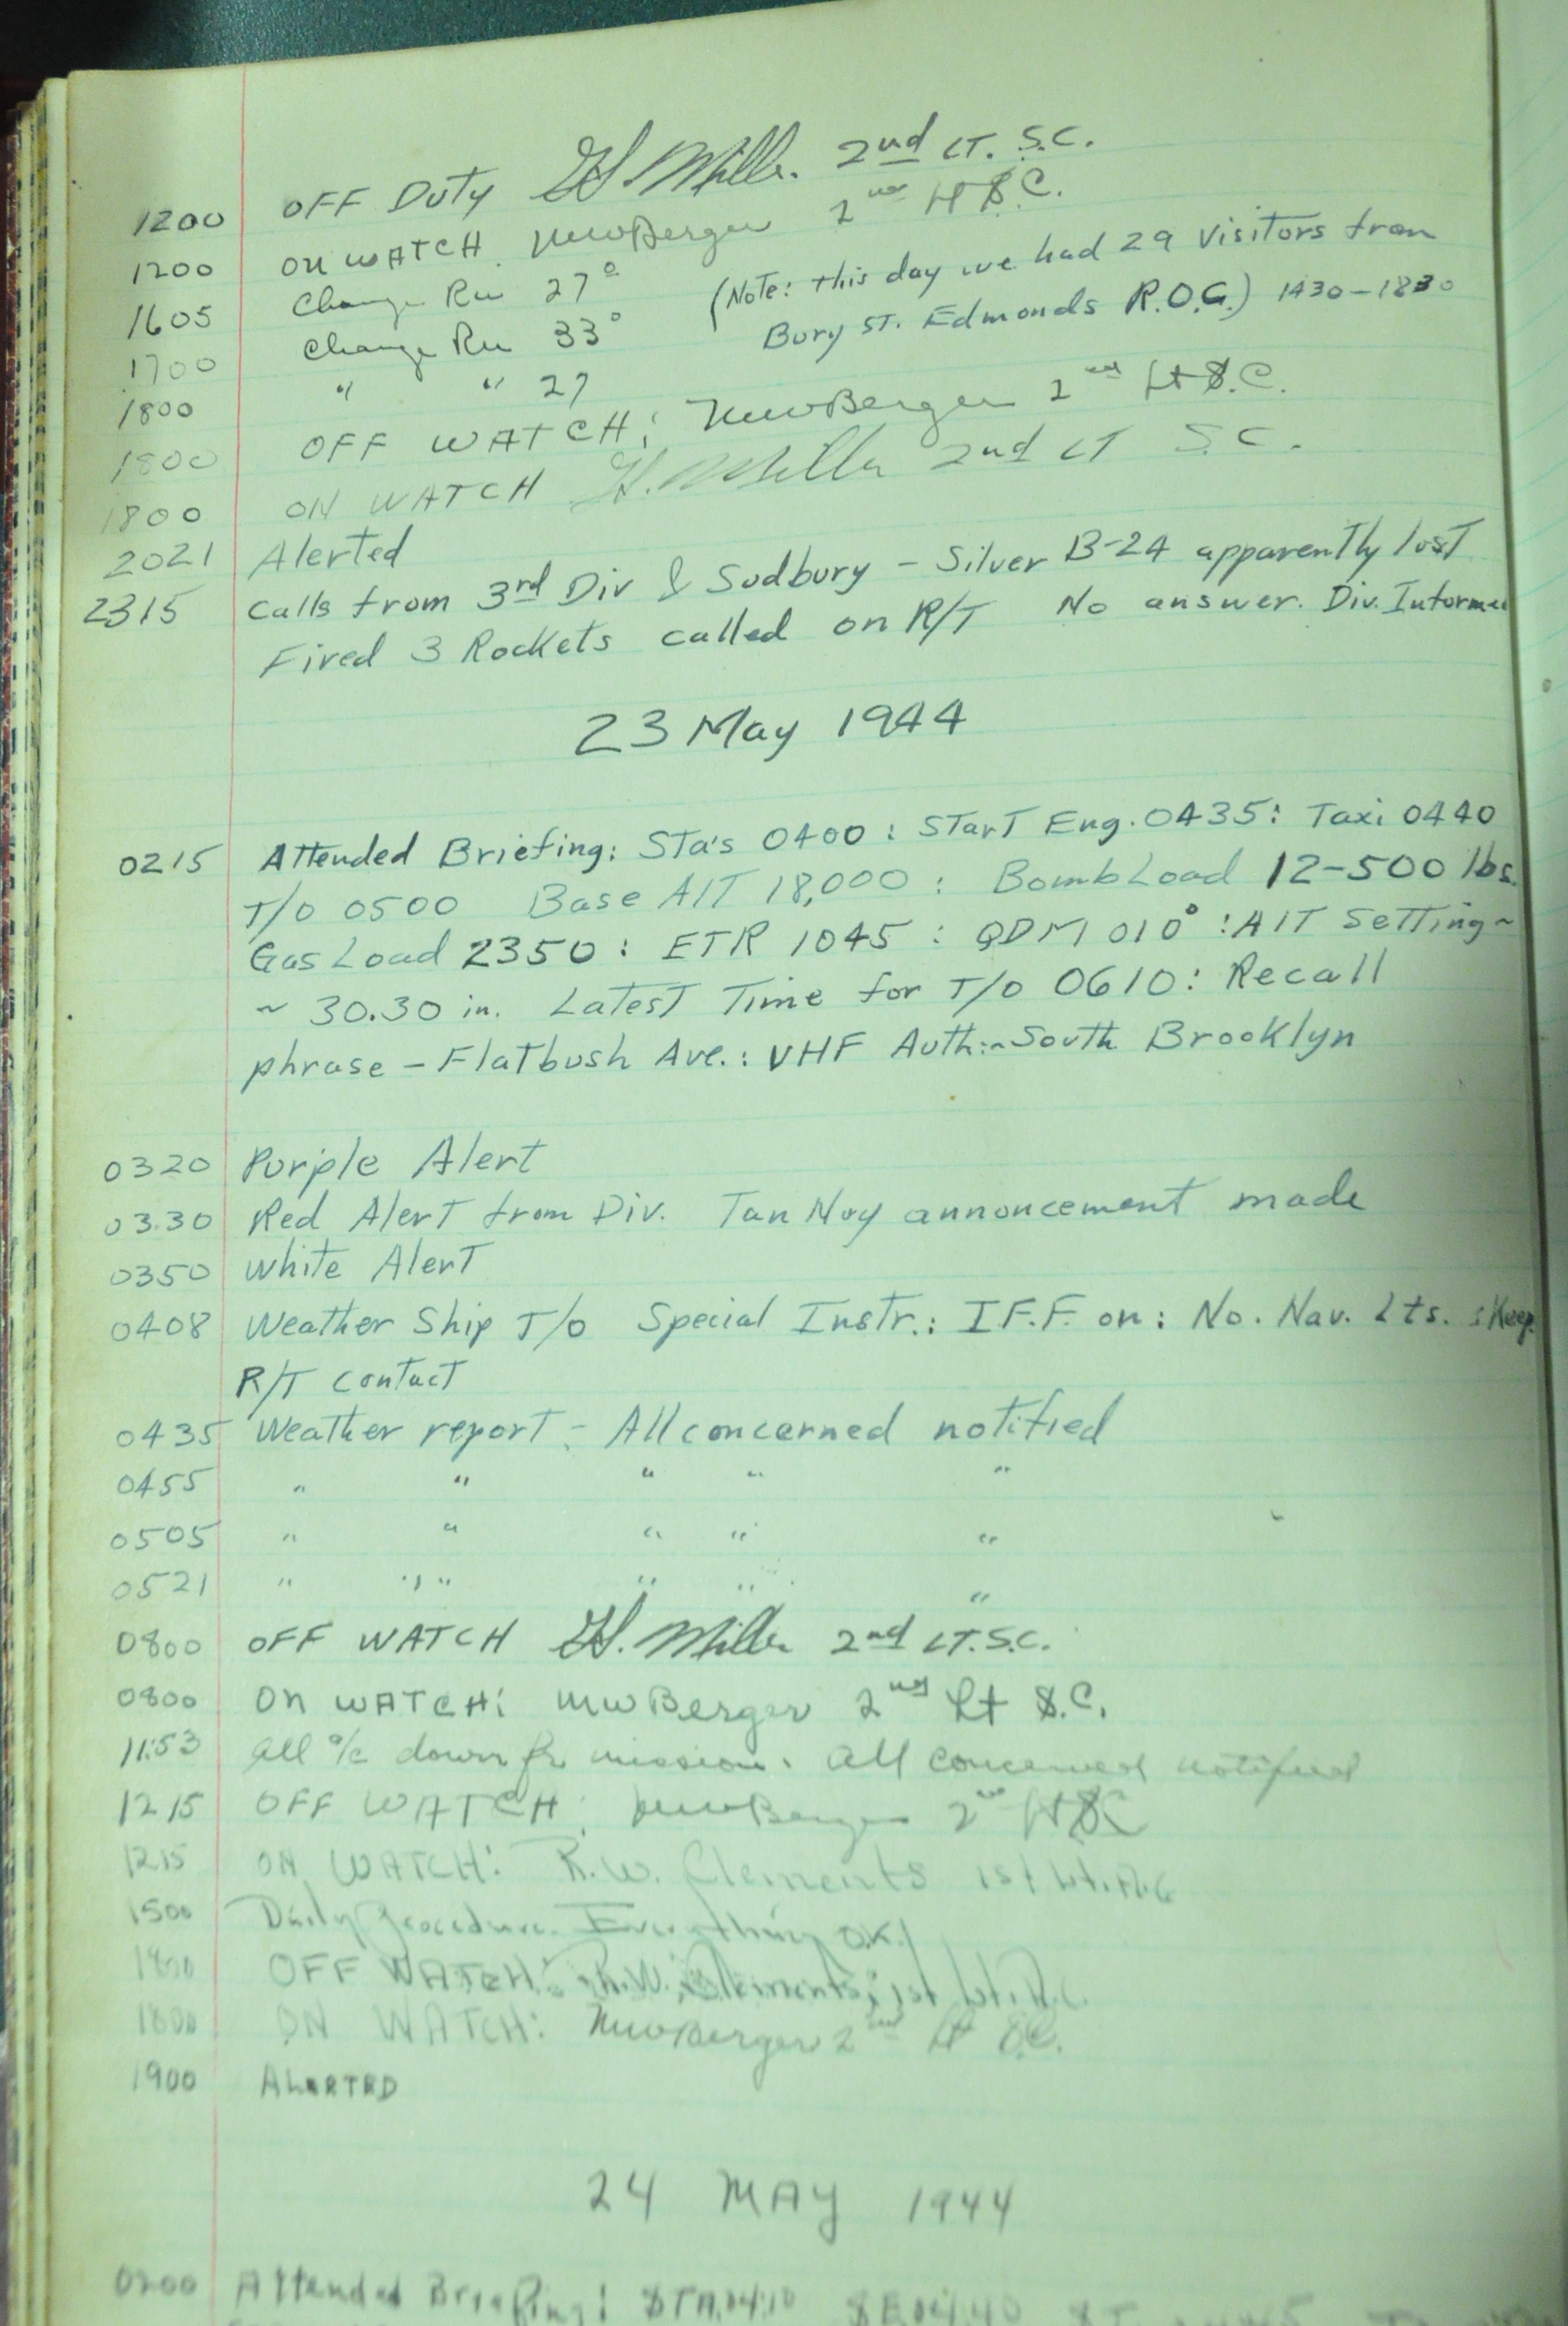 1200 OFF DUTY H. Miller. 2nd LT. S.C.
1200 ON WATCH. MWBerger 2nd Lt S.C.
1605 Change Rw 27° (Note: this day we had 29 visitors from
1700 Change Rw 33° Bury ST. Edmonds R.O.C.) 1430-1830
1800 " " 27
1800 OFF WATCH: MWBerger 2nd Lt S.C.
1800 ON WATCH H. Miller 2nd LT S.C.
2021 Alerted
2315 Calls from 3rd Div & Sudbury - Silver B-24 apparently lost
Fired 3 Rockets called on R/T No answer. Div. Informed
23 May 1944
0215 Attended Briefing: Sta's 0400: Start Eng. 0435: Taxi 0440
T/O 0500 Base Alt 18,000: Bomb Load 12-500 lbs.
Gas Load 2350: ETR 1045: QDM 010°: Alt Setting~
~ 30.30 in. Latest Time for T/O 0610: Recall
phrase - Flatbush Ave.: VHF Auth:~ South Brooklyn
0320 Purple Alert
0330 Red Alert from Div. Tan Noy annoncement made
0350 White Alert
0408 Weather Ship T/O Special Instr.: I.F.F. on: No. Nav. Lts. : Keep
R/T contact
0435 Weather report - All concerned notified
0455 " " " " "
0505 " " " " "
0521 " " " " "
0800 OFF WATCH H. Miller 2nd LT. S.C.
0800 ON WATCH: MWBerger 2nd Lt S.C.
11:53 All a/c down fr mission. All concerned notified
1215 OFF WATCH: MWBerger 2nd Lt SC
1215 ON WATCH: R.W. Clements 1st Lt. A.C
1500 Daily Procedure. Everything O.K.!
1800 OFF WATCH: R.W. Clements, 1st Lt. A.C.
1800 ON WATCH: MWBerger 2nd Lt S.C.
1900 ALERTED
24 MAY 1944
0200 Attended Briefing: STA. 0410